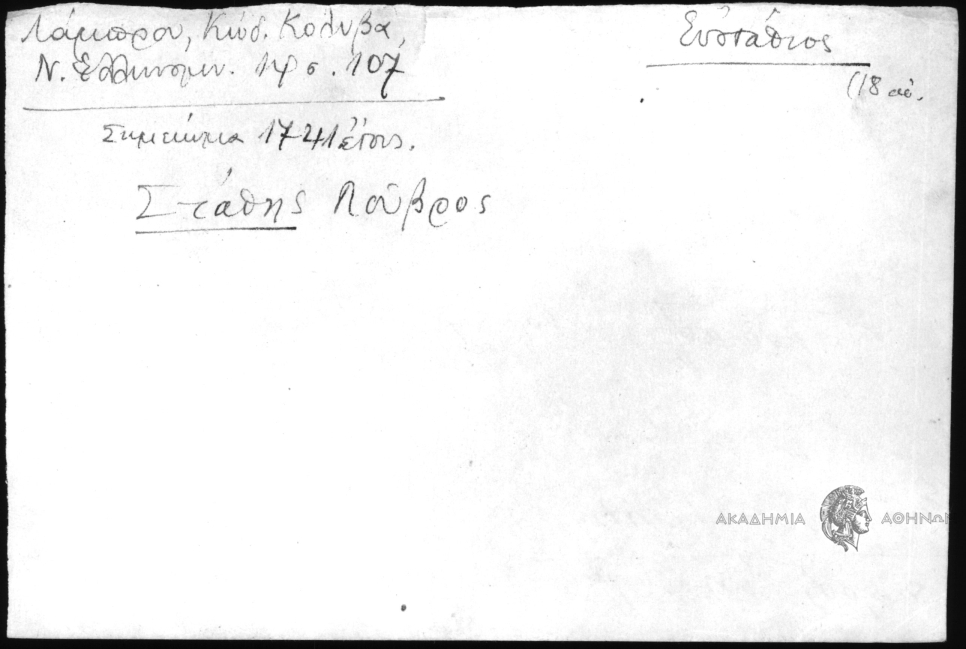 Λάμπρου, Κώδ. Κολυβᾶ,
Ν. Ἑλληνομν. 14 σ. 107
Εὐστάθιος
(18 αἰ.
Σημείωμα 1741 ἔτους.
Στάθης Λοῦβρος
ΑΚΑΔΗΜΙΑ ΑΘΗΝΩΝ